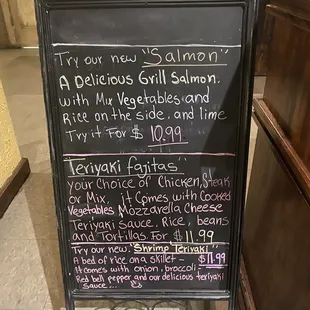 Try our new "Salmon"
A Delicious Grill Salmon.
with Mix Vegetables and
Rice on the side. and lime
Try it For $ 10.99
Teriyaki fajitas"
your Choice of Chicken, Steak
or Mix, it Comes with Cooked
Vegetables Mozzarella Cheese
Teriyaki Sauce, Rice, beans
and Tortillas For $ 11.99
Try our new "Shrimp Teriyaki"
A bed of rice on a skillet - $11.99
It comes with onion, broccoli -
Red bell pepper and our delicious teriyaki
Sauce...